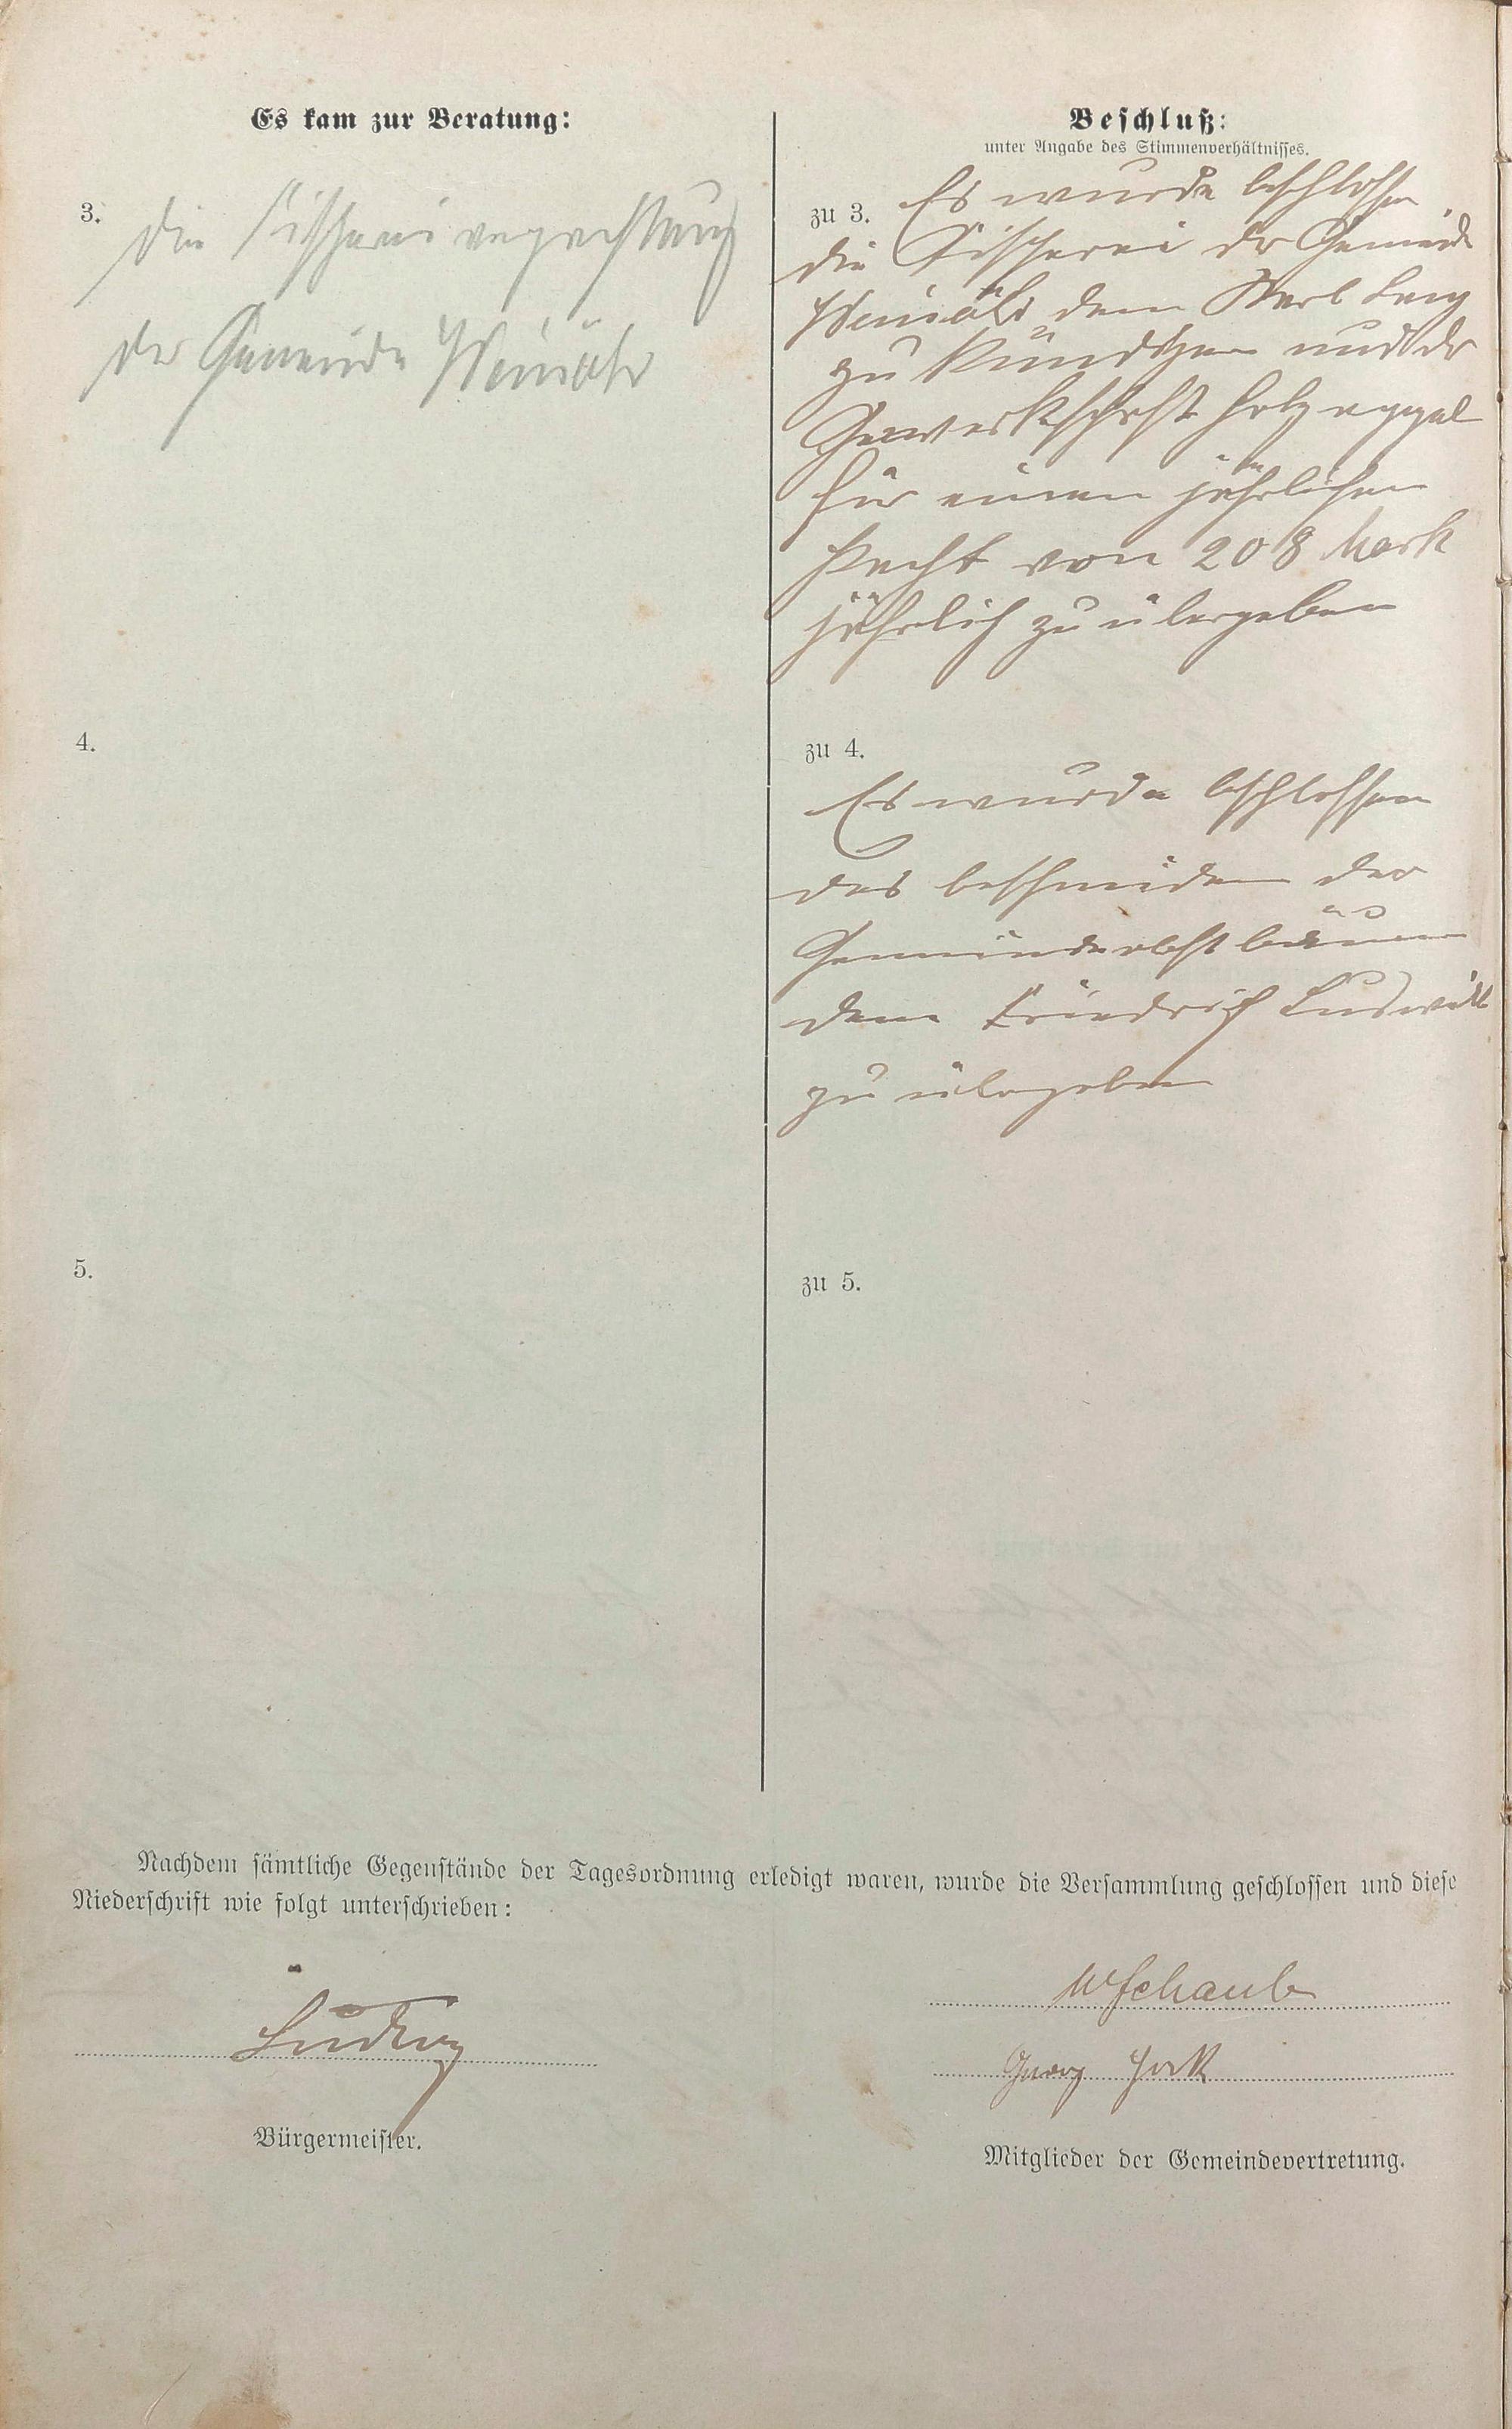 Es kam zur Beratung:
3. die Fischereiverpachtung
der Gemeinde Weinähr
4.
5.
Beschluß:
unter Angabe des Stimmenverhältnisses.
zu 3. Es wurde beschlossen
die Fischerei der Gemeinde
Weinähr dem Karl
zu kündigen und der
Gewerkschaft Holzappel
für einen jährlichen
Pacht von 208 Mark
jährlich zu übergeben
zu 4.
Es wurde beschlossen
das beschneiden der
Gemeindeobstbäume
dem Friedrich
zu übergeben
zu 5.
Nachdem sämtliche Gegenstände der Tagesordnung erledigt waren, wurde die Versammlung geschlossen und diese
Niederschrift wie folgt unterschrieben:
Ludwig
Bürgermeister.
W Schaub
Georg
Mitglieder der Gemeindevertretung.